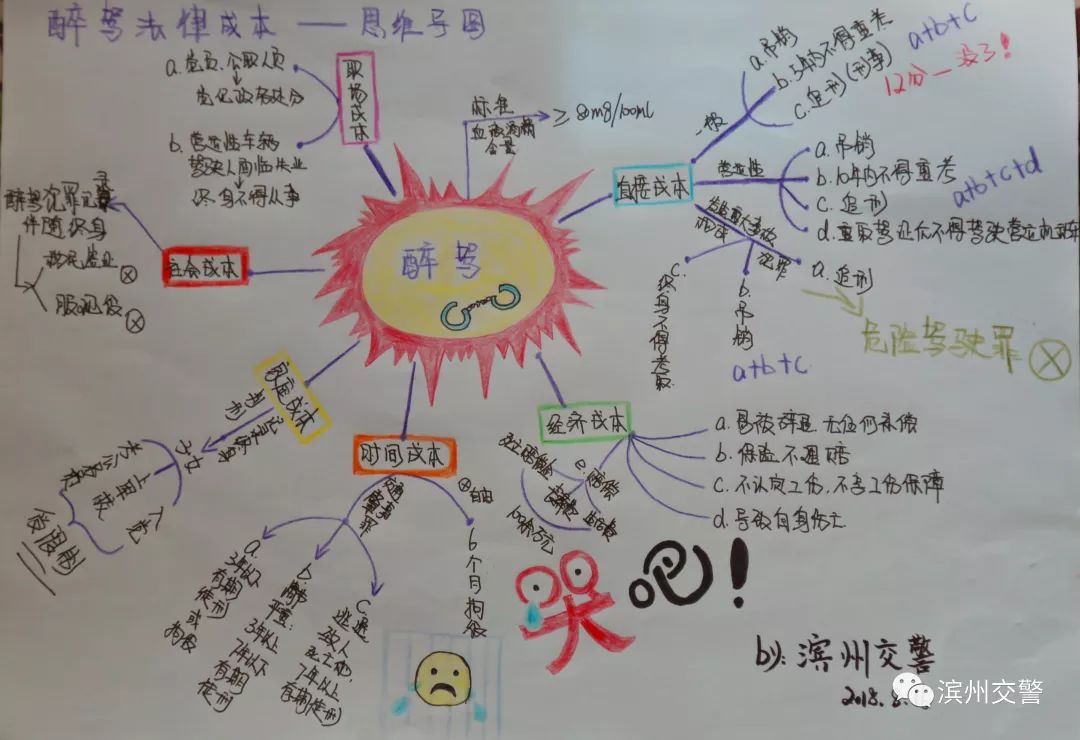 醉驾法律成本——思维导图
职场成本
a.党员、公职人员
党纪政务处分
b.营运性车辆
驾驶人面临失业
终身不得从事
标准
血液酒精
含量
≥80mg/100mL
直接成本
一般
a.吊销
b.5年内不得重考
c.追刑(刑事)
a+b+c
12分一没了!
营运性
a.吊销
b.10年内不得重考
c.追刑
d.重取驾证后不得驾驶营运机动车
a+b+c+d
发生重大事故
构成
犯罪
a.追刑
b.吊销
c.终身不得考取
a+b+c
危险驾驶罪
醉驾
社会成本
醉驾犯罪记录
伴随终身
移民签证
服兵役
家庭成本
判刑
记录终身
子女
考公务员
上军校
入党
受限制
时间成本
交通肇事罪
a.
3年以下
有期
徒刑
或
拘役
b.
情节
严重:
3年以上
7年以下
有期
徒刑
c.
逃逸
致人
死亡的,
7年以上
有期徒刑
自由
6个月拘役
经济成本
a.易被辞退 无任何补偿
b.保险不理赔
c.不认定工伤,不享工伤保障
d.导致自身伤亡
e.赔偿
死亡赔偿金
丧葬费
生活费
100余万元
哭吧!
by:滨州交警
2018.8.
滨州交警